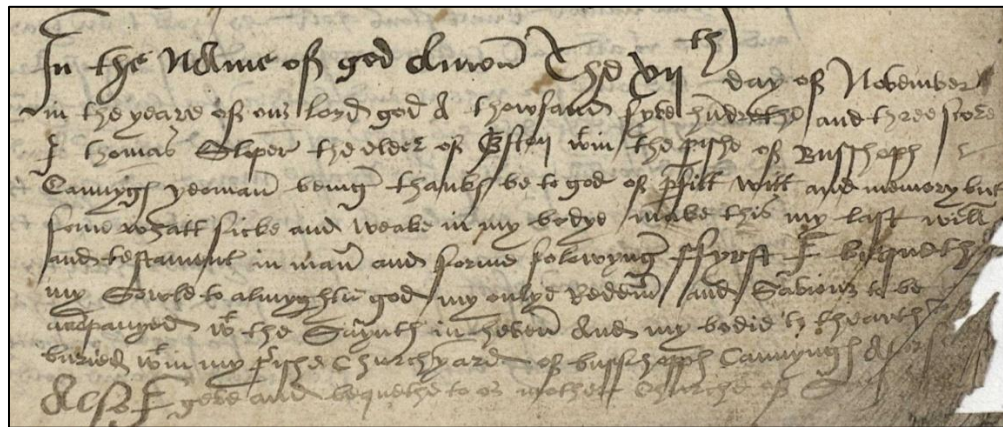 In the Name of god Amen The vii th day of November
in the yeare of our lord god A thowsand fyve hundrethe and three score
I thomas Sloper the elder of Estn wtin the pishe of Busshoph
Cannyngs yeoman being thanks be to god of pfitt witt and memory but
some whatt sicke and weake in my bodye make this my last will
and testament in mann and forme folowyng ffyrst I bequethe
my Sowle to almyghtie god my onlye Redemr and Saviour to be
accpanyed wt the Saynth in heven And my bodie to thearth
buried wtin my pishe Churchyard of busshopps Cannyngs
Also I geve and bequethe to or mother Churche of